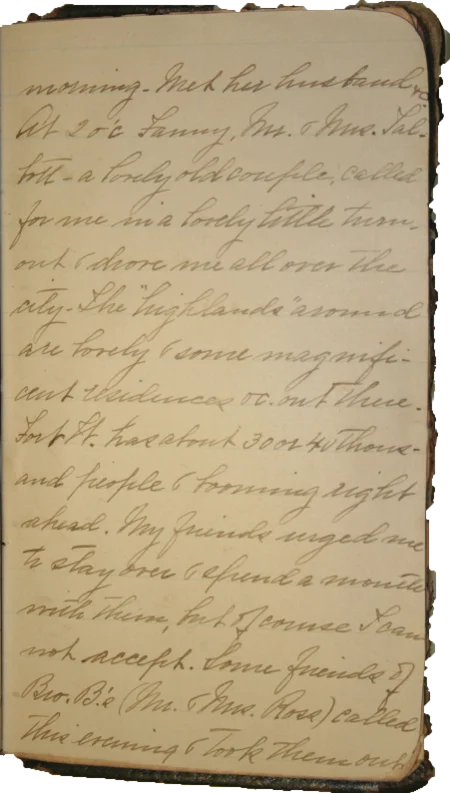 morning. Met her husband &c
At 2 o'c Fanny, Mr. & Mrs. Tal-
bott - a lovely old couple, called
for me in a lovely little turn-
out & drove me all over the
city. The "highlands" around
are lovely & some magnifi-
cent residences &c. out there.
Fort St. has about 30 or 40 thous-
and people & booming right
ahead. My friends urged me
to stay over & spend a month
with them, but of course I can
not accept. Some friends of
Bro. B.'s (Mr. & Mrs. Ross) called
this evening & took them out